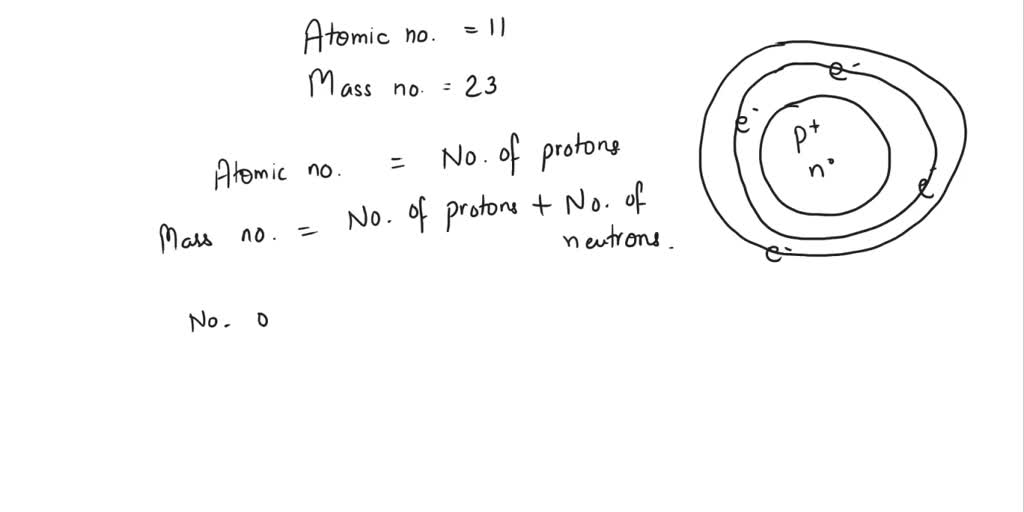 Atomic no. = 11
Mass no. = 23
Atomic no. = No. of protons
Mass no. = No. of protons + No. of
neutrons.
No. o
e-
e-
p+
n°
e-
e-